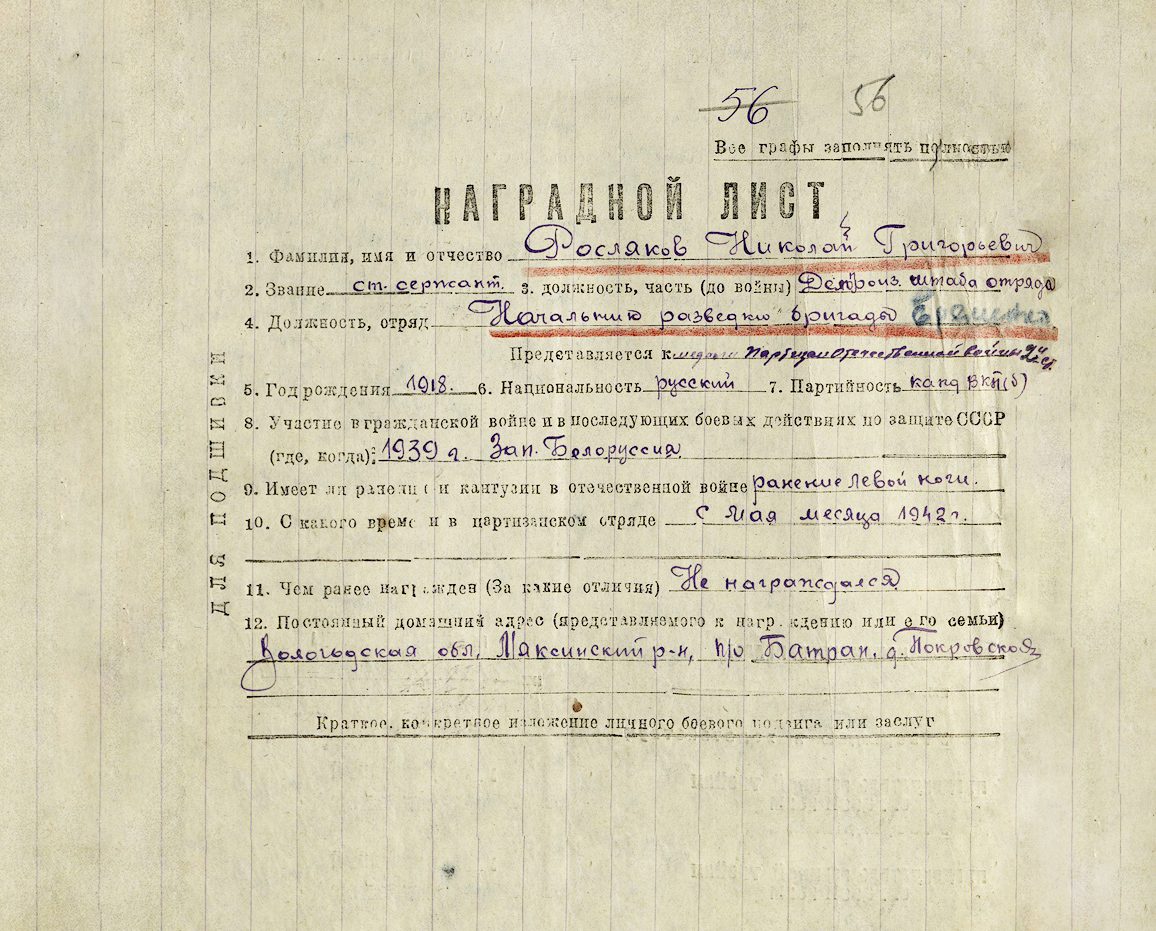 56 56
Все графы заполнять полностью
НАГРАДНОЙ ЛИСТ
1. Фамилия, имя и отчество Росляков Николай Григорьевич
2. Звание ст. сержант. 3. должность, часть (до войны) Делопроиз. штаба отряда
4. Должность, отряд Начальник разведки бригады
Представляется к медали Партизан Отечественной войны 2й ст.
5. Год рождения 1918. 6. Национальность русский 7. Партийность канд ВКП(б)
8. Участие в гражданской войне и в последующих боевых действиях по защите СССР
(где, когда): 1939 г. Зап. Белоруссия
9. Имеет ли ранения и кантузии в отечественной войне ранение левой ноги.
10. С какого времени в партизанском отряде С Мая месяца 1942 г.
11. Чем ранее награжден (За какие отличия) Не награждался
12. Постоянный домашний адрес (представляемого к награждению или его семьи)
Вологодская обл. Мяксинский р-н, п/о Батран. д. Покровское
Краткое, конкретное изложение личного боевого подвига или заслуг
ДЛЯ ПОДШИВКИ